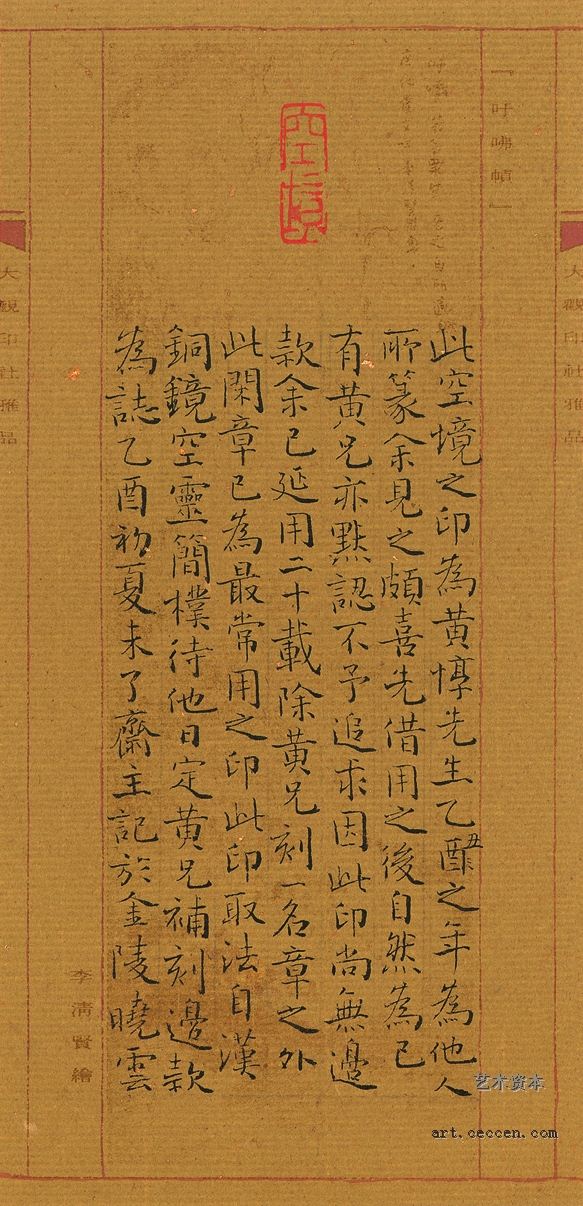 大觀印社雅品
空境
此空境之印為黃惇先生乙酉丑之年為他人
所篆余見之頗喜先借用之後自然為己
有黃兄亦默認不予追求因此印尚無邊
款余已延用二十載除黃兄刻一名章之外
此閑章已為最常用之印此印取法自漢
銅鏡空靈簡樸待他日定黃兄補刻邊款
為誌乙酉初夏未了齋主記於金陵曉雲
李清賢繪
大觀印社雅品
艺术资本
art.ceccen.com